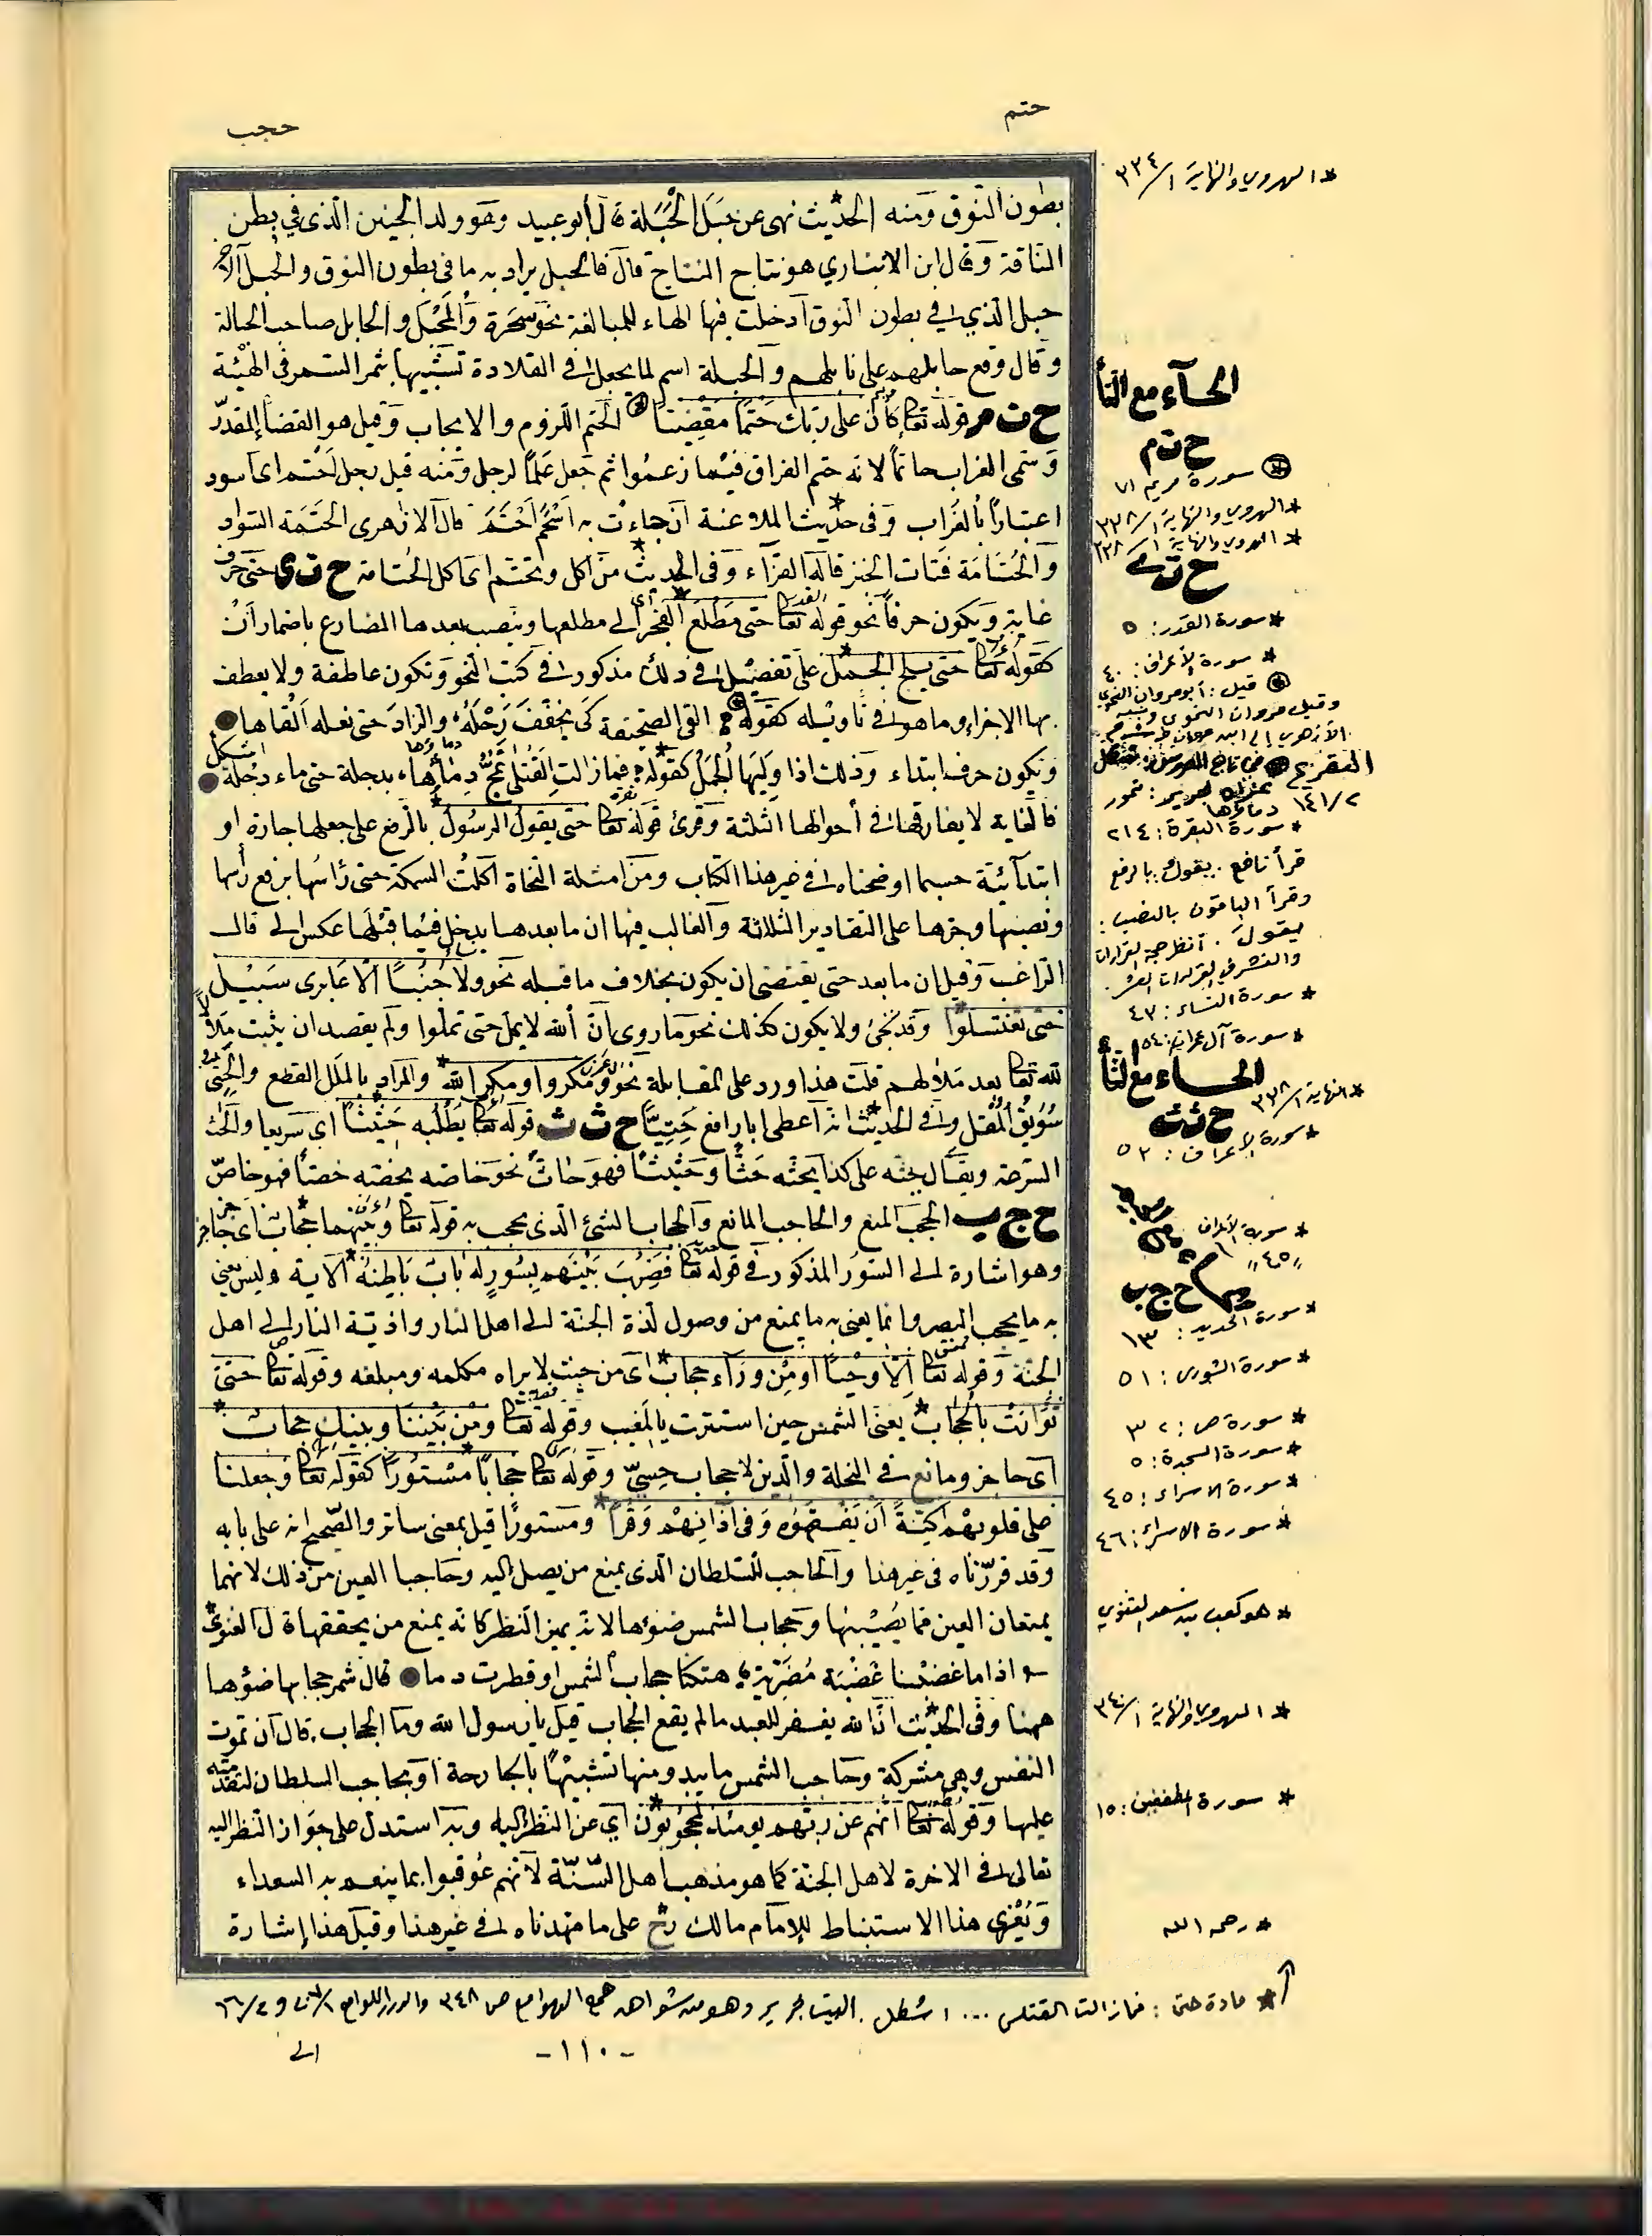 حتم
حجب
بطون النوق ومنه الحديث نهى عن حَبَل الحَبَلة قال أبو عبيد وهو ولد الجنين الذى في بطن
الناقة وقال ابن الانباري هو نتاج النتاج قال فالحبل يراد به ما فى بطون النوق والحبل الآخر
حبل الذي في بطون النوق أدخلت فيها الهاء للمبالغة نحو سخرة والمحبل والحابل صاحب الحبالة
وقال وقع حابلهم على نابلهم والحبلة اسم لما يجعل في القلادة تشبيها بثمر السمر في الهيئة
ح ت م قوله تعا كان على ربك حتمًا مقضيًا الحتم اللزوم والايجاب وقيل هو القضاء المقدّر
وسمى الغراب حاتماً لانه حتم الفراق فيما زعموا ثم جعل علمًا لرجل ومنه قيل رجل احتم اى اسود
اعتبارًا بالغراب وفى حديث الملاعنة ان جاءت به اسحم احتم قال الازهرى الحتمة السواد
والحتامة فتات الخبز قاله الفراء وفى الحديث من اكل وتحتم اى اكل الحتامة ح ت ى حتى حرف
غاية ويكون حرفاً نحو قوله تعا حتى مطلع الفجر اى الى مطلعها وينصب بعدها المضارع باضمار أن
كقوله تعا حتى يلج الجمل على تفصيل في ذلك مذكور في كتب النحو وتكون عاطفة ولا يعطف
بها الا جزء وما هو في تأويله كقوله القى الصحيفة كى يخفف رحله والزاد حتى نعله القاها
وتكون حرف ابتداء وذلك اذا وليها الجمل كقوله فما زالت القتلى تمج دماءها بدجلة حتى ماء دجلة اشكل
فالغاية لا يفارقها في أحوالها الثلثة وقرئ قوله تعا حتى يقول الرسول بالرفع على جعلها جارة او
ابتدائية حسبما اوضحناه في غير هذا الكتاب ومن امثلة النحاة اكلت السمكة حتى رأسها برفع رأسها
ونصبها وجرها على التقادير الثلاثة والغالب فيها ان ما بعدها يدخل فيما قبلها عكس الى قال
الراغب وقيل ان ما بعد حتى يقتضى ان يكون بخلاف ما قبله نحو ولا جُنُبًا الّا عابرى سبيل
حتى تغتسلوا وقد تجئ ولا يكون كذلك نحو ما روى انّ الله لا يمل حتى تملوا ولم يقصد ان يثبت مللاً
لله تعا بعد مللهم قلت هذا ورد على المقابلة نحو ومكروا ومكر الله والمراد بالملل القطع والحَتِىّ
سويق المقل وفي الحديث انه أعطى ابا رافع حَتِيًّا ح ث ث قوله تعا يطلبه حثيثًا اى سريعا والحث
السرعة ويقال حثه على كذا يحثه حثًا وحثيثًا فهو حاث نحو خاصه يخصه خصًا فهو خاصّ
ح ج ب الحجب المنع والحاجب المانع والحجاب الشئ الذى يحجب به قوله تعا وبينهما حجاب اى حاجز
وهو اشارة الى السور المذكور في قوله تعا فضرب بينهم بسور له باب باطنه الآية وليس يعني
به ما يحجب البصر وانما يعنى به ما يمنع من وصول لذة الجنة الى اهل النار واذية النار الى اهل
الجنة وقوله تعا الّا وحيًا او من وراء حجاب اى من حيث لا يراه مكلمه ومبلغه وقوله تعا حتى
توارت بالحجاب يعنى الشمس حين استترت بالمغيب وقوله تعا ومن بيننا وبينك حجاب
اى حاجز ومانع فى النحلة والدين لا حجاب حسىّ وقوله تعا حجابًا مستورًا كقوله تعا وجعلنا
على قلوبهم اكنّةً أن يفقهوه وفى آذانهم وقرًا ومستورًا قيل بمعنى ساتر والصحيح انه على بابه
وقد قرّرناه فى غير هذا والحاجب للسلطان الذى يمنع من يصل اليه وحاجبا العين من ذلك لانهما
يمنعان العين مما يصيبها وحجاب الشمس ضوئها لانه يميز النظر كانه يمنع من يحققها قال الغنوىّ
اذا ما غضبنا غضبة مضرية هتكنا حجاب الشمس او قطرت دما قال شمر حجابها ضوئها
ههنا وفى الحديث انّ الله يغفر للعبد ما لم يقع الحجاب قيل يا رسول الله وما الحجاب قال أن تموت
النفس وهي مشركة وحاجب الشمس ما يبدو منها تشبيهًا بالجارحة أو بحاجب السلطان لتقدمته
عليها وقوله تعا انهم عن ربهم يومئذ لمحجوبون أي عن النظر اليه وبه استدل على جواز النظر اليه
تعالى في الاخرة لاهل الجنة كما هو مذهب أهل السّنّة لأنهم عوقبوا بما ينعم به السعداء
ويُعْزى هذا الاستنباط للإمام مالك رح على ما مهدناه في غير هذا وقيل هذا إشارة
* الهروي والنهاية ١/٣٣٤
الحآء مع التا
ح ت م
سورة مريم ٧١
* الهروي والنهاية ١/٣٣٨
* الهروي والنهاية ١/٣٣٨
ح ت ى
* سورة القدر: ٥
* سورة الأعراف: ٤٠
قيل: أبو مروان النحوي
وقيل مروان النحوي
١٤١/٢
* سورة البقرة: ٢١٤
قرأ نافع: يقول: بالرفع
وقرأ الباقون بالنصب:
يقولَ. أنظر حجة القراءات
والنشر في القراءات العشر.
* سورة النساء: ٤٣
* سورة آل عمران: ٥٤
الحاء مع الثا
* النهاية ١/٣٣٨
ح ث ث
* سورة الأعراف: ٥٢
* سورة الأعراف
"٤٥"
ح ج ب
* سورة الحديد: ١٣
* سورة الشورى: ٥١
* سورة ص: ٣٢
* سورة السجدة: ٥
* سورة الاسراء: ٤٥
* سورة الاسراء: ٤٦
* هو كعب بن سعد الغنوي
* الهروي والنهاية ١/٣٤٠
* سورة المطففين: ١٥
* رحمه الله
* مادة حتى: فما زالت القتلى ... اشكل. البيت لجرير وهو من شواهد همع الهوامع ص ٣٤٨ والدرر اللوامع
الى
-١١٠-